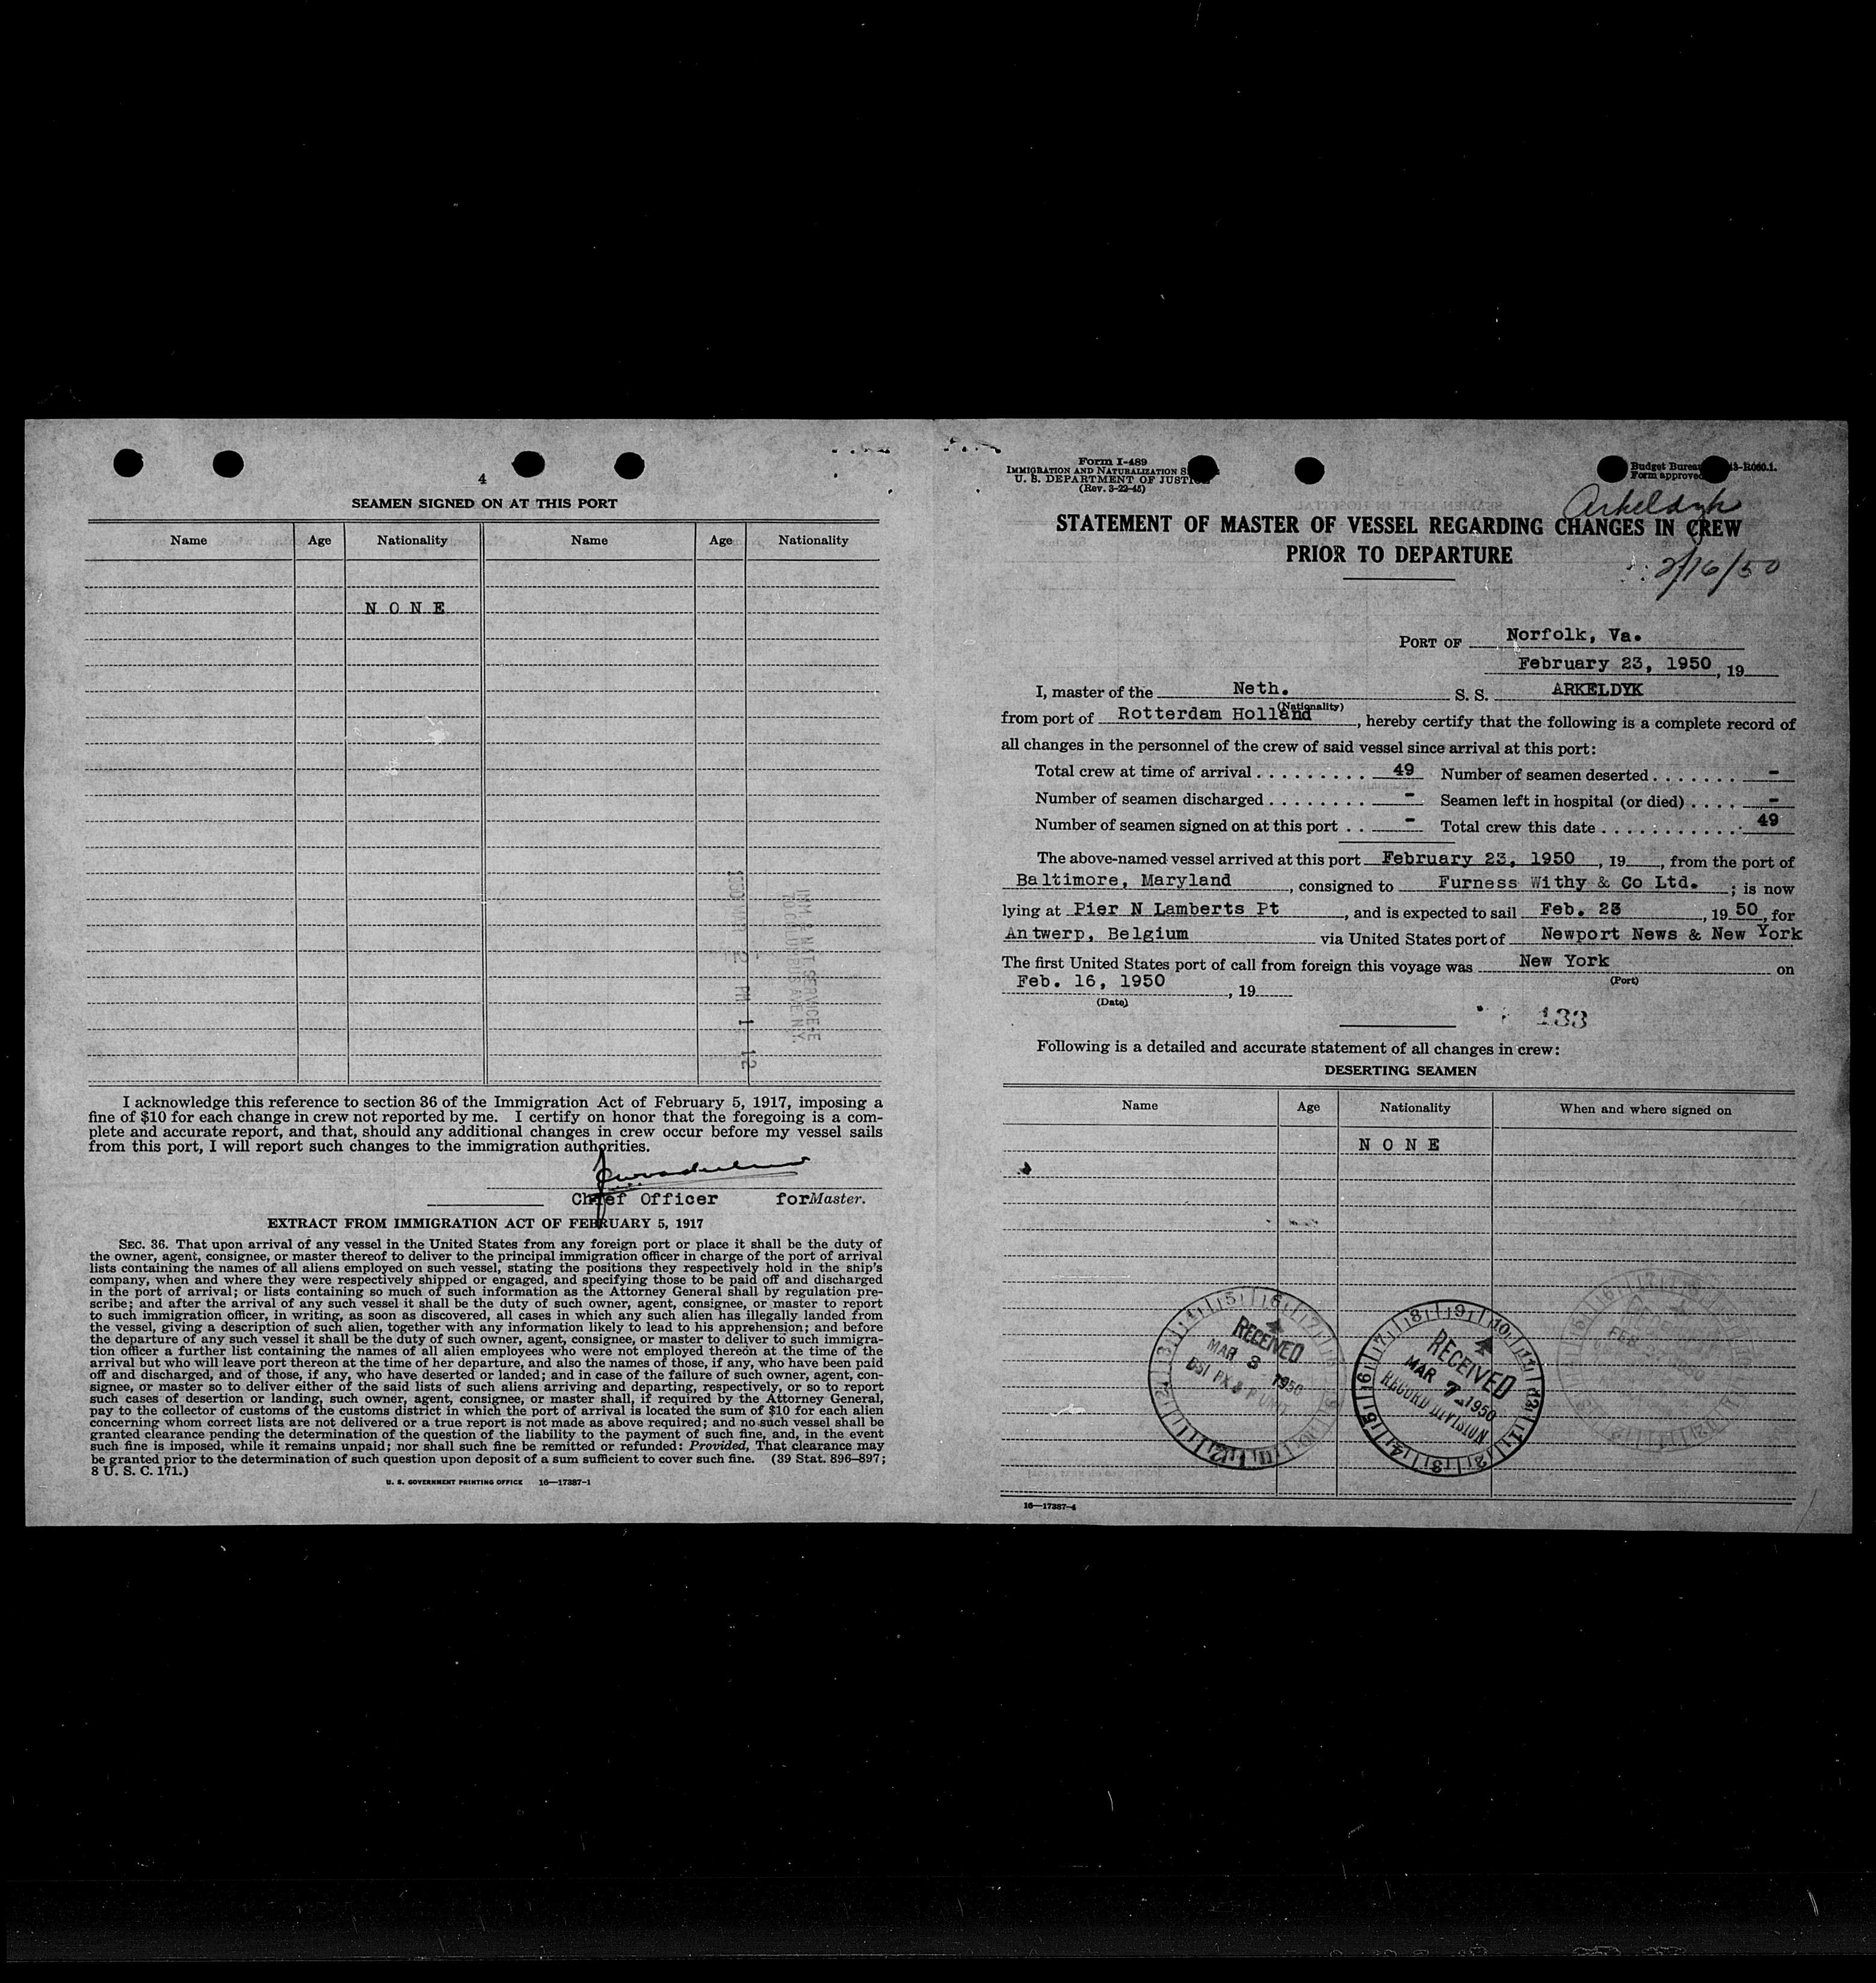 4
SEAMEN SIGNED ON AT THIS PORT
Name Age Nationality Name Age Nationality
N O N E
IMM & NAT SERVICE-E
70 COLUMBUS AVE N.Y.
PM 1 12
I acknowledge this reference to section 36 of the Immigration Act of February 5, 1917, imposing a
fine of $10 for each change in crew not reported by me. I certify on honor that the foregoing is a com-
plete and accurate report, and that, should any additional changes in crew occur before my vessel sails
from this port, I will report such changes to the immigration authorities.
Chief Officer for Master.
EXTRACT FROM IMMIGRATION ACT OF FEBRUARY 5, 1917
SEC. 36. That upon arrival of any vessel in the United States from any foreign port or place it shall be the duty of
the owner, agent, consignee, or master thereof to deliver to the principal immigration officer in charge of the port of arrival
lists containing the names of all aliens employed on such vessel, stating the positions they respectively hold in the ship's
company, when and where they were respectively shipped or engaged, and specifying those to be paid off and discharged
in the port of arrival; or lists containing so much of such information as the Attorney General shall by regulation pre-
scribe; and after the arrival of any such vessel it shall be the duty of such owner, agent, consignee, or master to report
to such immigration officer, in writing, as soon as discovered, all cases in which any such alien has illegally landed from
the vessel, giving a description of such alien, together with any information likely to lead to his apprehension; and before
the departure of any such vessel it shall be the duty of such owner, agent, consignee, or master to deliver to such immigra-
tion officer a further list containing the names of all alien employees who were not employed thereon at the time of the
arrival but who will leave port thereon at the time of her departure, and also the names of those, if any, who have been paid
off and discharged, and of those, if any, who have deserted or landed; and in case of the failure of such owner, agent, con-
signee, or master so to deliver either of the said lists of such aliens arriving and departing, respectively, or so to report
such cases of desertion or landing, such owner, agent, consignee, or master shall, if required by the Attorney General,
pay to the collector of customs of the customs district in which the port of arrival is located the sum of $10 for each alien
concerning whom correct lists are not delivered or a true report is not made as above required; and no such vessel shall be
granted clearance pending the determination of the question of the liability to the payment of such fine, and, in the event
such fine is imposed, while it remains unpaid; nor shall such fine be remitted or refunded: Provided, That clearance may
be granted prior to the determination of such question upon deposit of a sum sufficient to cover such fine. (39 Stat. 896-897;
8 U. S. C. 171.)
U. S. GOVERNMENT PRINTING OFFICE 16—17387-1
Form I-489
IMMIGRATION AND NATURALIZATION
U. S. DEPARTMENT OF JUSTICE
(Rev. 3-22-45)
Budget Bureau 43-R060.1.
Form approved
Arkeldyk
STATEMENT OF MASTER OF VESSEL REGARDING CHANGES IN CREW
PRIOR TO DEPARTURE
2/16/50
PORT OF Norfolk, Va.
February 23, 1950, 19
I, master of the Neth. S. S. ARKELDYK
(Nationality)
from port of Rotterdam Holland, hereby certify that the following is a complete record of
all changes in the personnel of the crew of said vessel since arrival at this port:
Total crew at time of arrival . . . . . . . . . 49 Number of seamen deserted . . . . . . . -
Number of seamen discharged . . . . . . . . - Seamen left in hospital (or died) . . . . -
Number of seamen signed on at this port . . - Total crew this date . . . . . . . . . . . . 49
The above-named vessel arrived at this port February 23, 1950, 19, from the port of
Baltimore, Maryland, consigned to Furness Withy & Co Ltd. ; is now
lying at Pier N Lamberts Pt, and is expected to sail Feb. 23, 19 50, for
Antwerp, Belgium via United States port of Newport News & New York
The first United States port of call from foreign this voyage was New York on
(Port)
Feb. 16, 1950, 19
(Date)
133
Following is a detailed and accurate statement of all changes in crew:
DESERTING SEAMEN
Name Age Nationality When and where signed on
N O N E
RECEIVED
MAR 3 1950
RECEIVED
MAR 7 1950
RECORD DIVISION
FEB 1950
16—17387-4